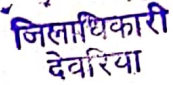 जिलाधिकारी
देवरिया